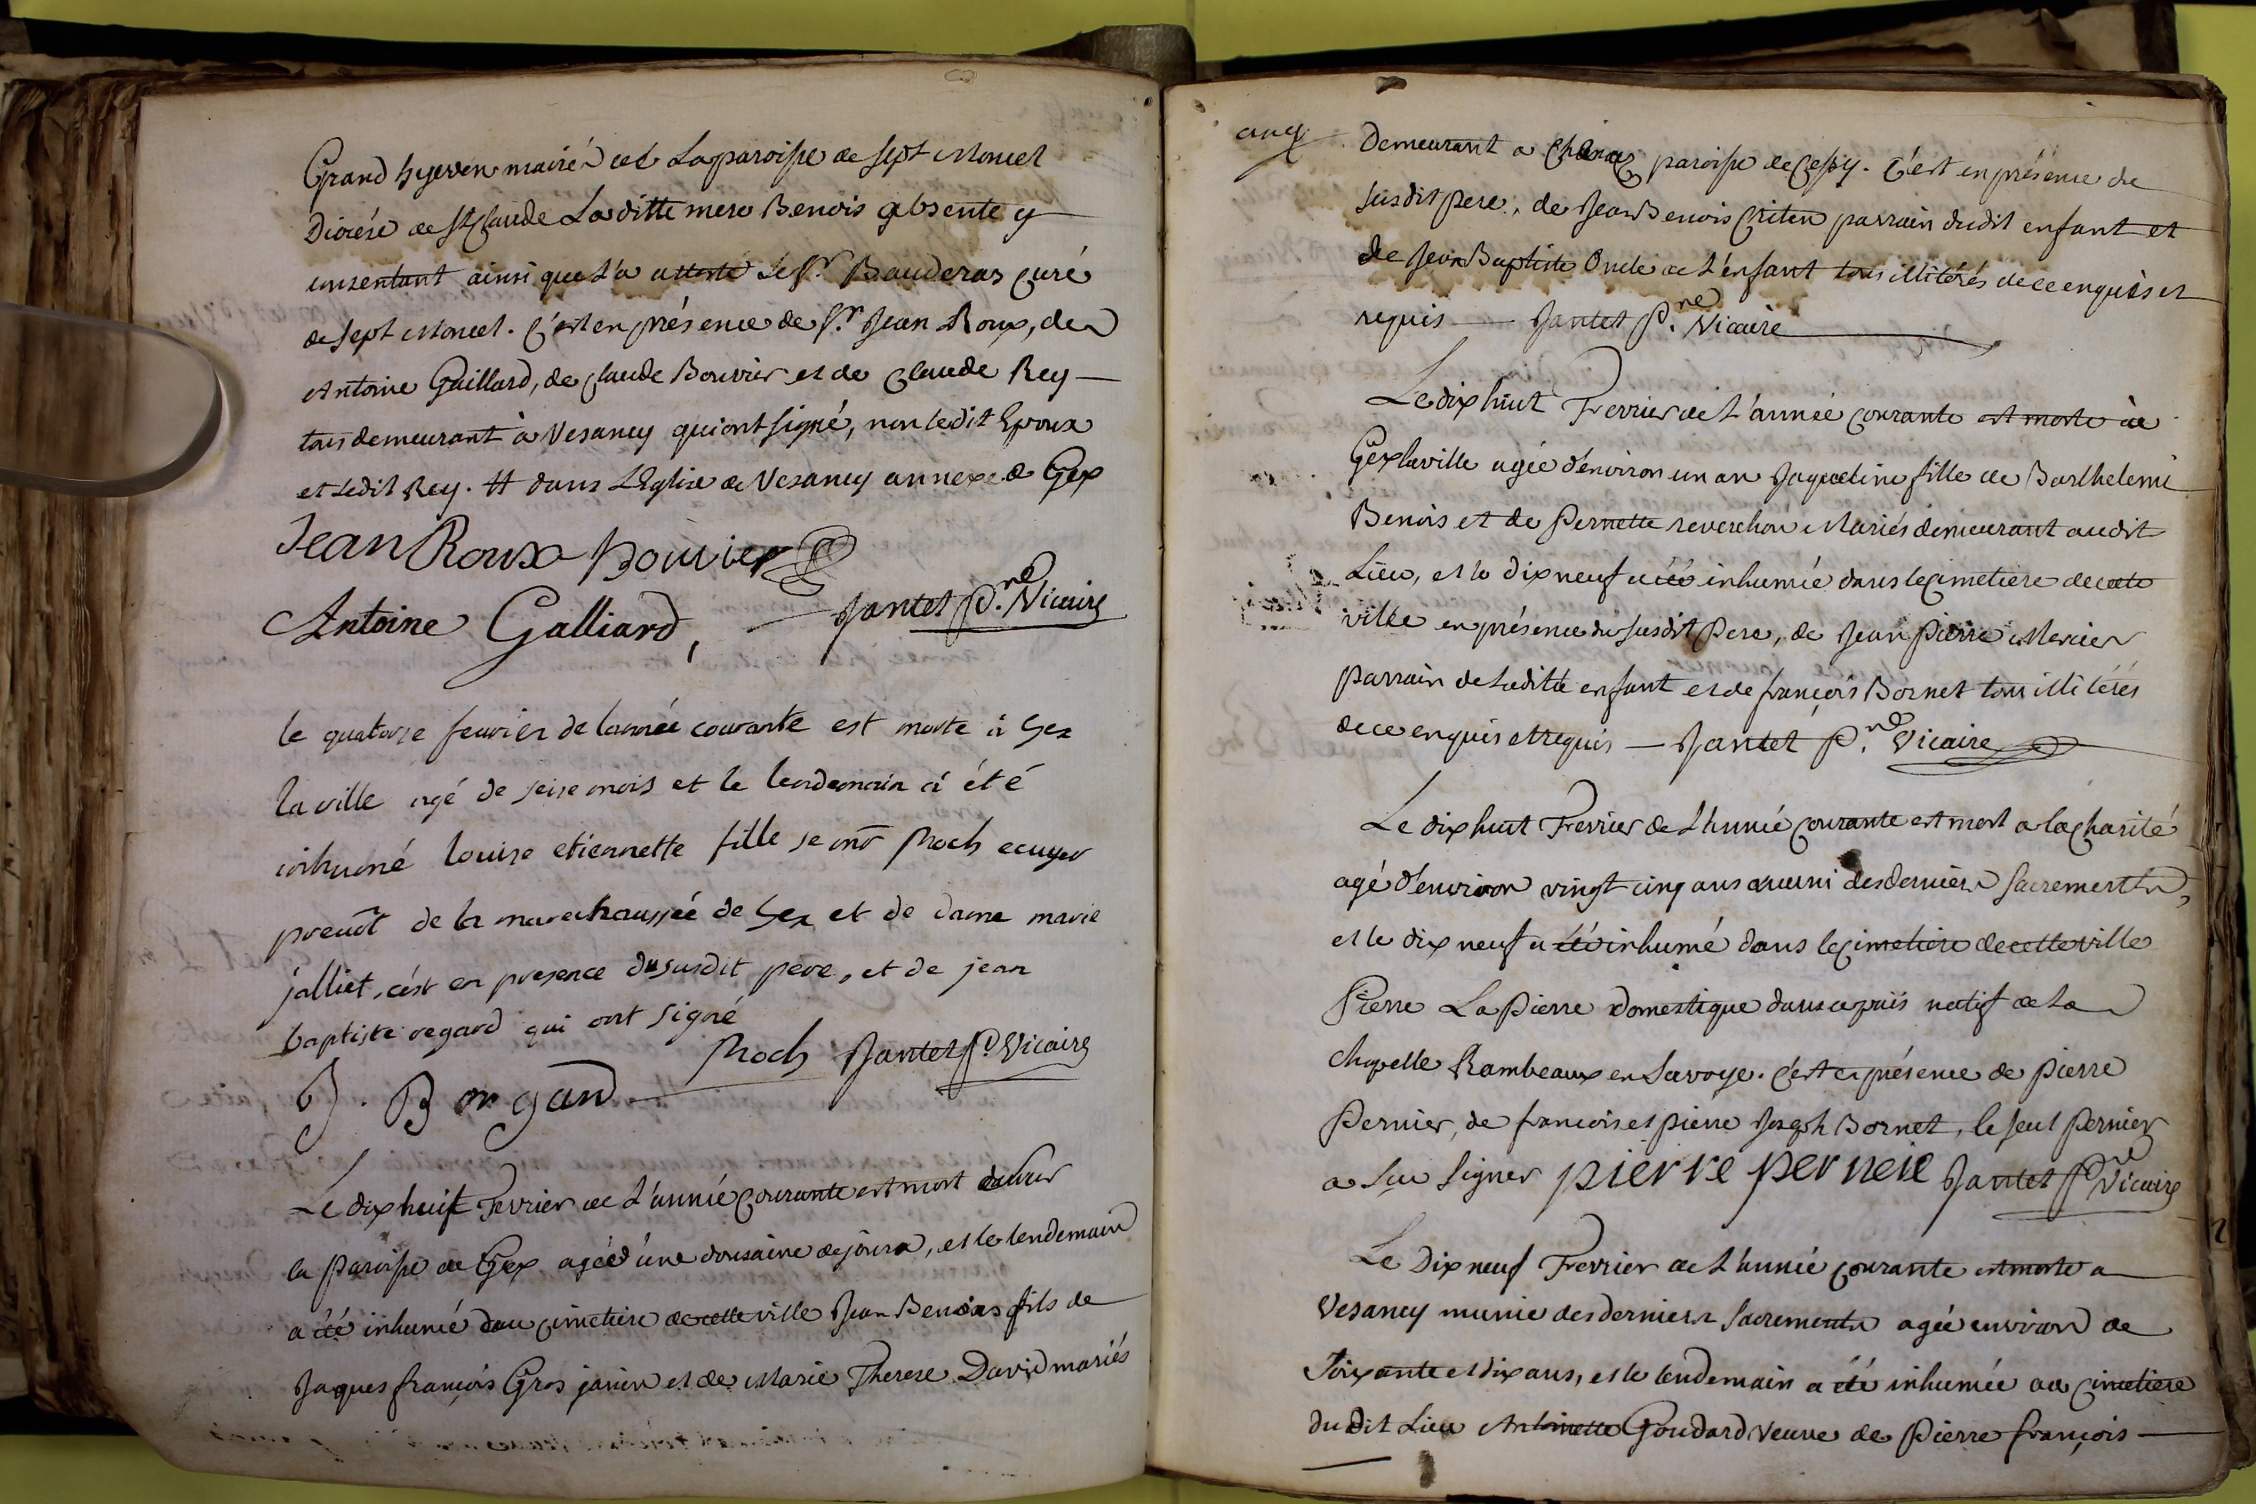 Grand hyeven mairé de La paroisse de sept Moncel
Diocése de St Claude La ditte mere Benois absente y
consentant ainsi que L'a attesté le Sr. Bauderas Curé
de sept Moncel. C'est en présence de Sr. Jean Roux, de
Antoine Gaillard, de Claude Bouvier et de Claude Rey
tous demeurant à Vesancy qui ont signé, non ledit Epoux
et Ledit Rey. # dans L'Eglise de Vesancy annexe de Gex
Jean Roux Bouvier
Antoine Galliard, Jantet P.re Vicaire
le quatorze feuvrier de lannée courante est morte à Gex
la ville agé de seize mois et le lendemain à été
inhumé louise etiennette fille de mr Roch ecuyer
prevôt de la marechaussée de Gex et de dame marie
jalliet, c'est en presence du susdit pere, et de jean
baptiste regard qui ont signé
Roch Jantet P. Vicaire
Le dix huit Fevrier de L'année Courante est mort
la Paroisse de Gex agé d'une dousaine de jours, et le lendemain
a été inhumé dau Cimetiere de cette ville Jean Benois fils de
Jaques françois Gros janin et de Marie Therese David mariés
Demeurant a paroisse de Cessy. C'est en présence du
susdit Pere, de Jean Benois parrain dudit enfant et
de Jean Baptiste Oncle de L'enfant tous illitérés de ce enquis et
requis Jantet P.re Vicaire
Le dix huit Fevrier de L'année Courante est morte à
Gex la ville agée d'environ un an Jaqueline fille de Barthelemi
Benois et de Pernette reverchon Mariés demeurant audit
Lieu, et le dix neuf a été inhumée dans le Cimetiere de cette
ville en présence du susdit Pere, de Jean Pierre Mercier
Parrain de Ladite enfant et de françois Bornet tous illitérés
de ce enquis et requis Jantet P.re Vicaire
Le dix huit Fevrier de L'année Courante est mort a la Charité
agé d'environ vingt cinq ans muni des derniers Sacrements,
et le dix neuf a été inhumé dans le Cimetiere de cette ville
Pierre La Pierre Domestique dans ce païs natif de La
Chapelle Rambeaux en Savoye. C'est en présence de Pierre
Pernier, de francois et pierre Joseph Bornet, le seul Pernier
a Sçu Signer pierre perneie Jantet P.re Vicaire
Le Dix neuf Fevrier de L'année Courante est morte a
Vesancy munie des derniers Sacrements agée environ de
Soixante et dix ans, et le lendemain a été inhumée au Cimetiere
du dit Lieu Antoinette Goudard Veuve de Pierre françois